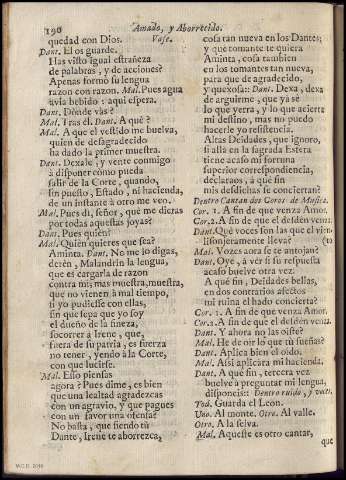 190
Amado, y Aborrecido.
quedad con Dios. Vase.
Dant. El os guarde.
Has visto igual estrañeza
de palabras, y de acciones?
Apenas formò su lengua
razon con razon. Mal. Pues agua
avia bebido: aqui espera.
Dant. Dònde vàs?
Mal. Tras èl. Dant. A què?
Mal. A que el vestido me buelva,
quien de desagradecido
ha dado la primer muestra.
Dant. Dexale, y vente conmigo
à disponer còmo pueda
salir de la Corte, quando,
sin puesto, Estado, ni hacienda,
de un instante à otro me veo.
Mal. Pues di, señor, què me dieras
por todas aquestas joyas?
Dant. Pues quièn?
Mal. Quièn quieres que sea?
Aminta. Dant. No me lo digas,
detèn, Malandrin la lengua,
que es cargarla de razon
contra mi; mas muestra, muestra,
que no vienen à mal tiempo,
si yo pudiesse con ellas,
sin que sepa que yo soy
el dueño de la fineza,
socorrer à Irene, que,
fuera de su patria, es fuerza
no tener, yendo à la Corte,
con que lucirse.
Mal. Esso piensas
agora? Pues dime, es bien
que una lealtad agradezcas
con un agravio, y que pagues
con un favor una ofensa?
No basta, que siendo tù
Dante, Irene te aborrezca,
cosa tan nueva en los Dantes;
y que tomante te quiera
Aminta, cosa tambien
en los tomantes tan nueva,
para que de agradecido,
y quexosa:: Dant. Dexa, dexa
de arguirme, que ya sè
lo que yerra, y lo que acierta
mi destino, mas no puedo
hacerle yo resistencia.
Altas Deidades, que ignoro,
si allà en la sagrada Esfera
tiene acaso mi fortuna
superior correspondencia,
declaraos, à què fin
mis desdichas se conciertan?
Dentro Cantan dos Coros de Musica.
Cor. 1. A fin de que venza Amor.
Cor. 2. A fin de que el desdèn venza.
Dant. Què voces son las que el vien-
lisonjeramente lleva? (to
Mal. Voces aora se te antojan?
Dant. Oye, à vèr si su respuesta
acaso buelve otra vez.
A què fin, Deidades bellas,
en dos contrarios afectos
mi ruina el hado concierta?
Cor. 1. A fin de que venza Amor.
Cor. 2. A fin de que el desdèn venza.
Dant. Y ahora no las oiste?
Mal. He de oir lo que tù sueñas?
Dant. Aplica bien el oido.
Mal. Assi aplicàra mi hacienda.
Dant. A què fin, tercera vez
buelve à preguntar mi lengua,
disponeis:: Dentro ruido, y voces.
Tod. Guarda el Leon.
Uno. Al monte. Otro. Al valle.
Otro. A la selva.
Mal. Aqueste es otro cantar,
que